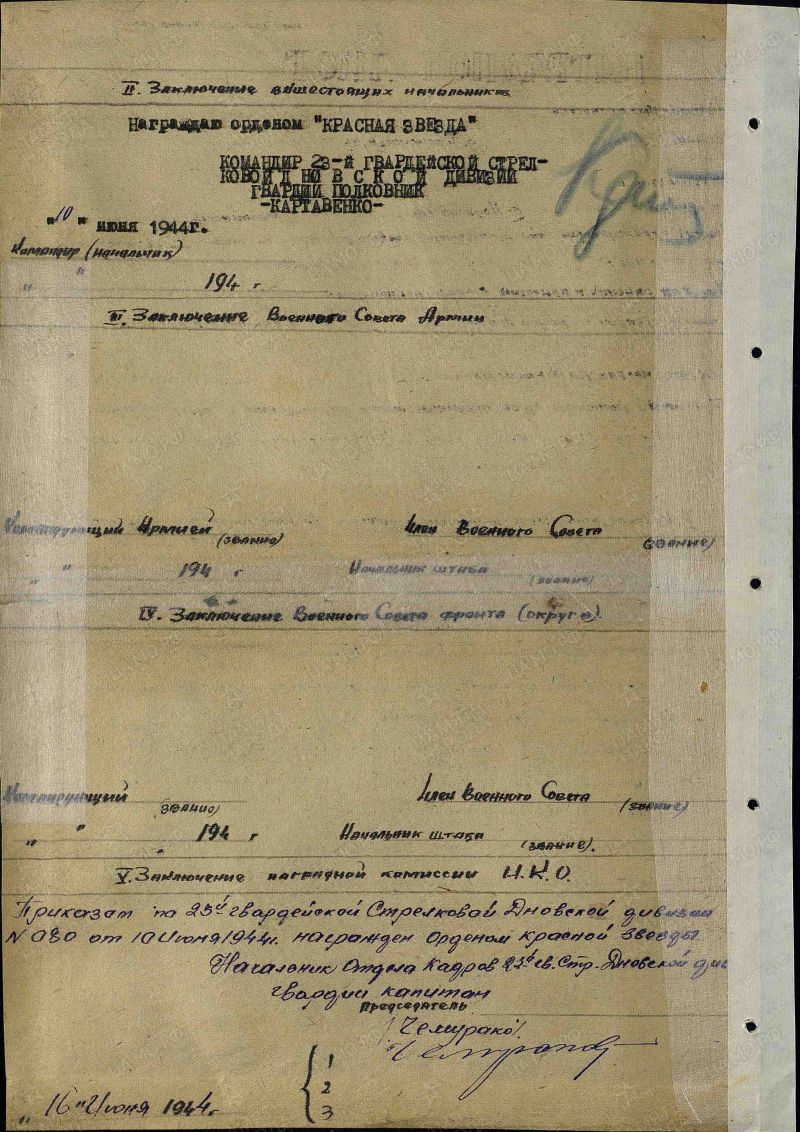 II. Заключение вышестоящих начальников
Награждаю орденом "КРАСНАЯ ЗВЕЗДА"
КОМАНДИР 23-Й ГВАРДЕЙСКОЙ СТРЕЛ-
КОВОЙ Д НО В С К О Й ДИВИЗИИ
ГВАРДИИ ПОЛКОВНИК
-КАРТАВЕНКО-
"10" июня 1944г.
Командир (начальник)
" " 194 г
III. Заключение Военного Совета Армии
Командующий Армией Член Военного Совета
(звание) (звание)
" " 194 г Начальник штаба
(звание)
IV. Заключение Военного Совета фронта (округа).
Командующий Член Военного Совета
(звание) (звание)
" " 194 г Начальник штаба
(звание).
V. Заключение наградной комиссии Н.К.О.
Приказат по 23й гвардейской Стрелковай Дновской дивизии
N 030 от 10 Июня 1944г. награжден Орденом Красной Звезды
Начальник Отдела Кадров 23й гв. Стр. Дновской див
гвардии капитан
Председатель
1
2
3
"16" Июня 1944г.